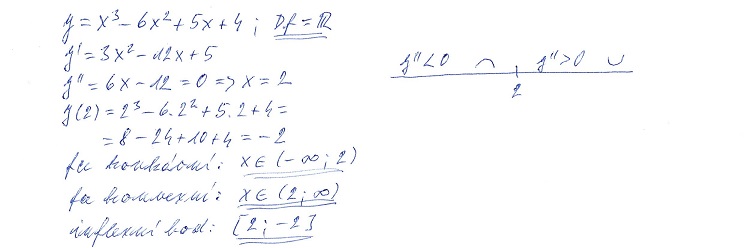 y = x³ - 6x² + 5x + 4 ; Df = ℝ
y' = 3x² - 12x + 5
y'' = 6x - 12 = 0 => x = 2
y(2) = 2³ - 6.2² + 5.2 + 4 =
= 8 - 24 + 10 + 4 = -2
fce konkávní: x ∈ (-∞; 2)
fce konvexní: x ∈ (2; ∞)
inflexní bod: [2; -2]
y'' < 0 ∩ y'' > 0 ∪
2